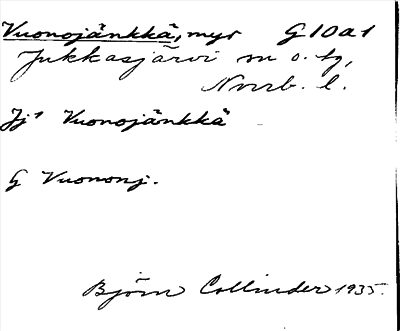 Vuonojänkkä, myr G10a1
Jukkasjärvi sn o. tg,
Norrb. l.
Jj1 Vuonojänkkä
G Vuononj.
Björn Collinder 1935.